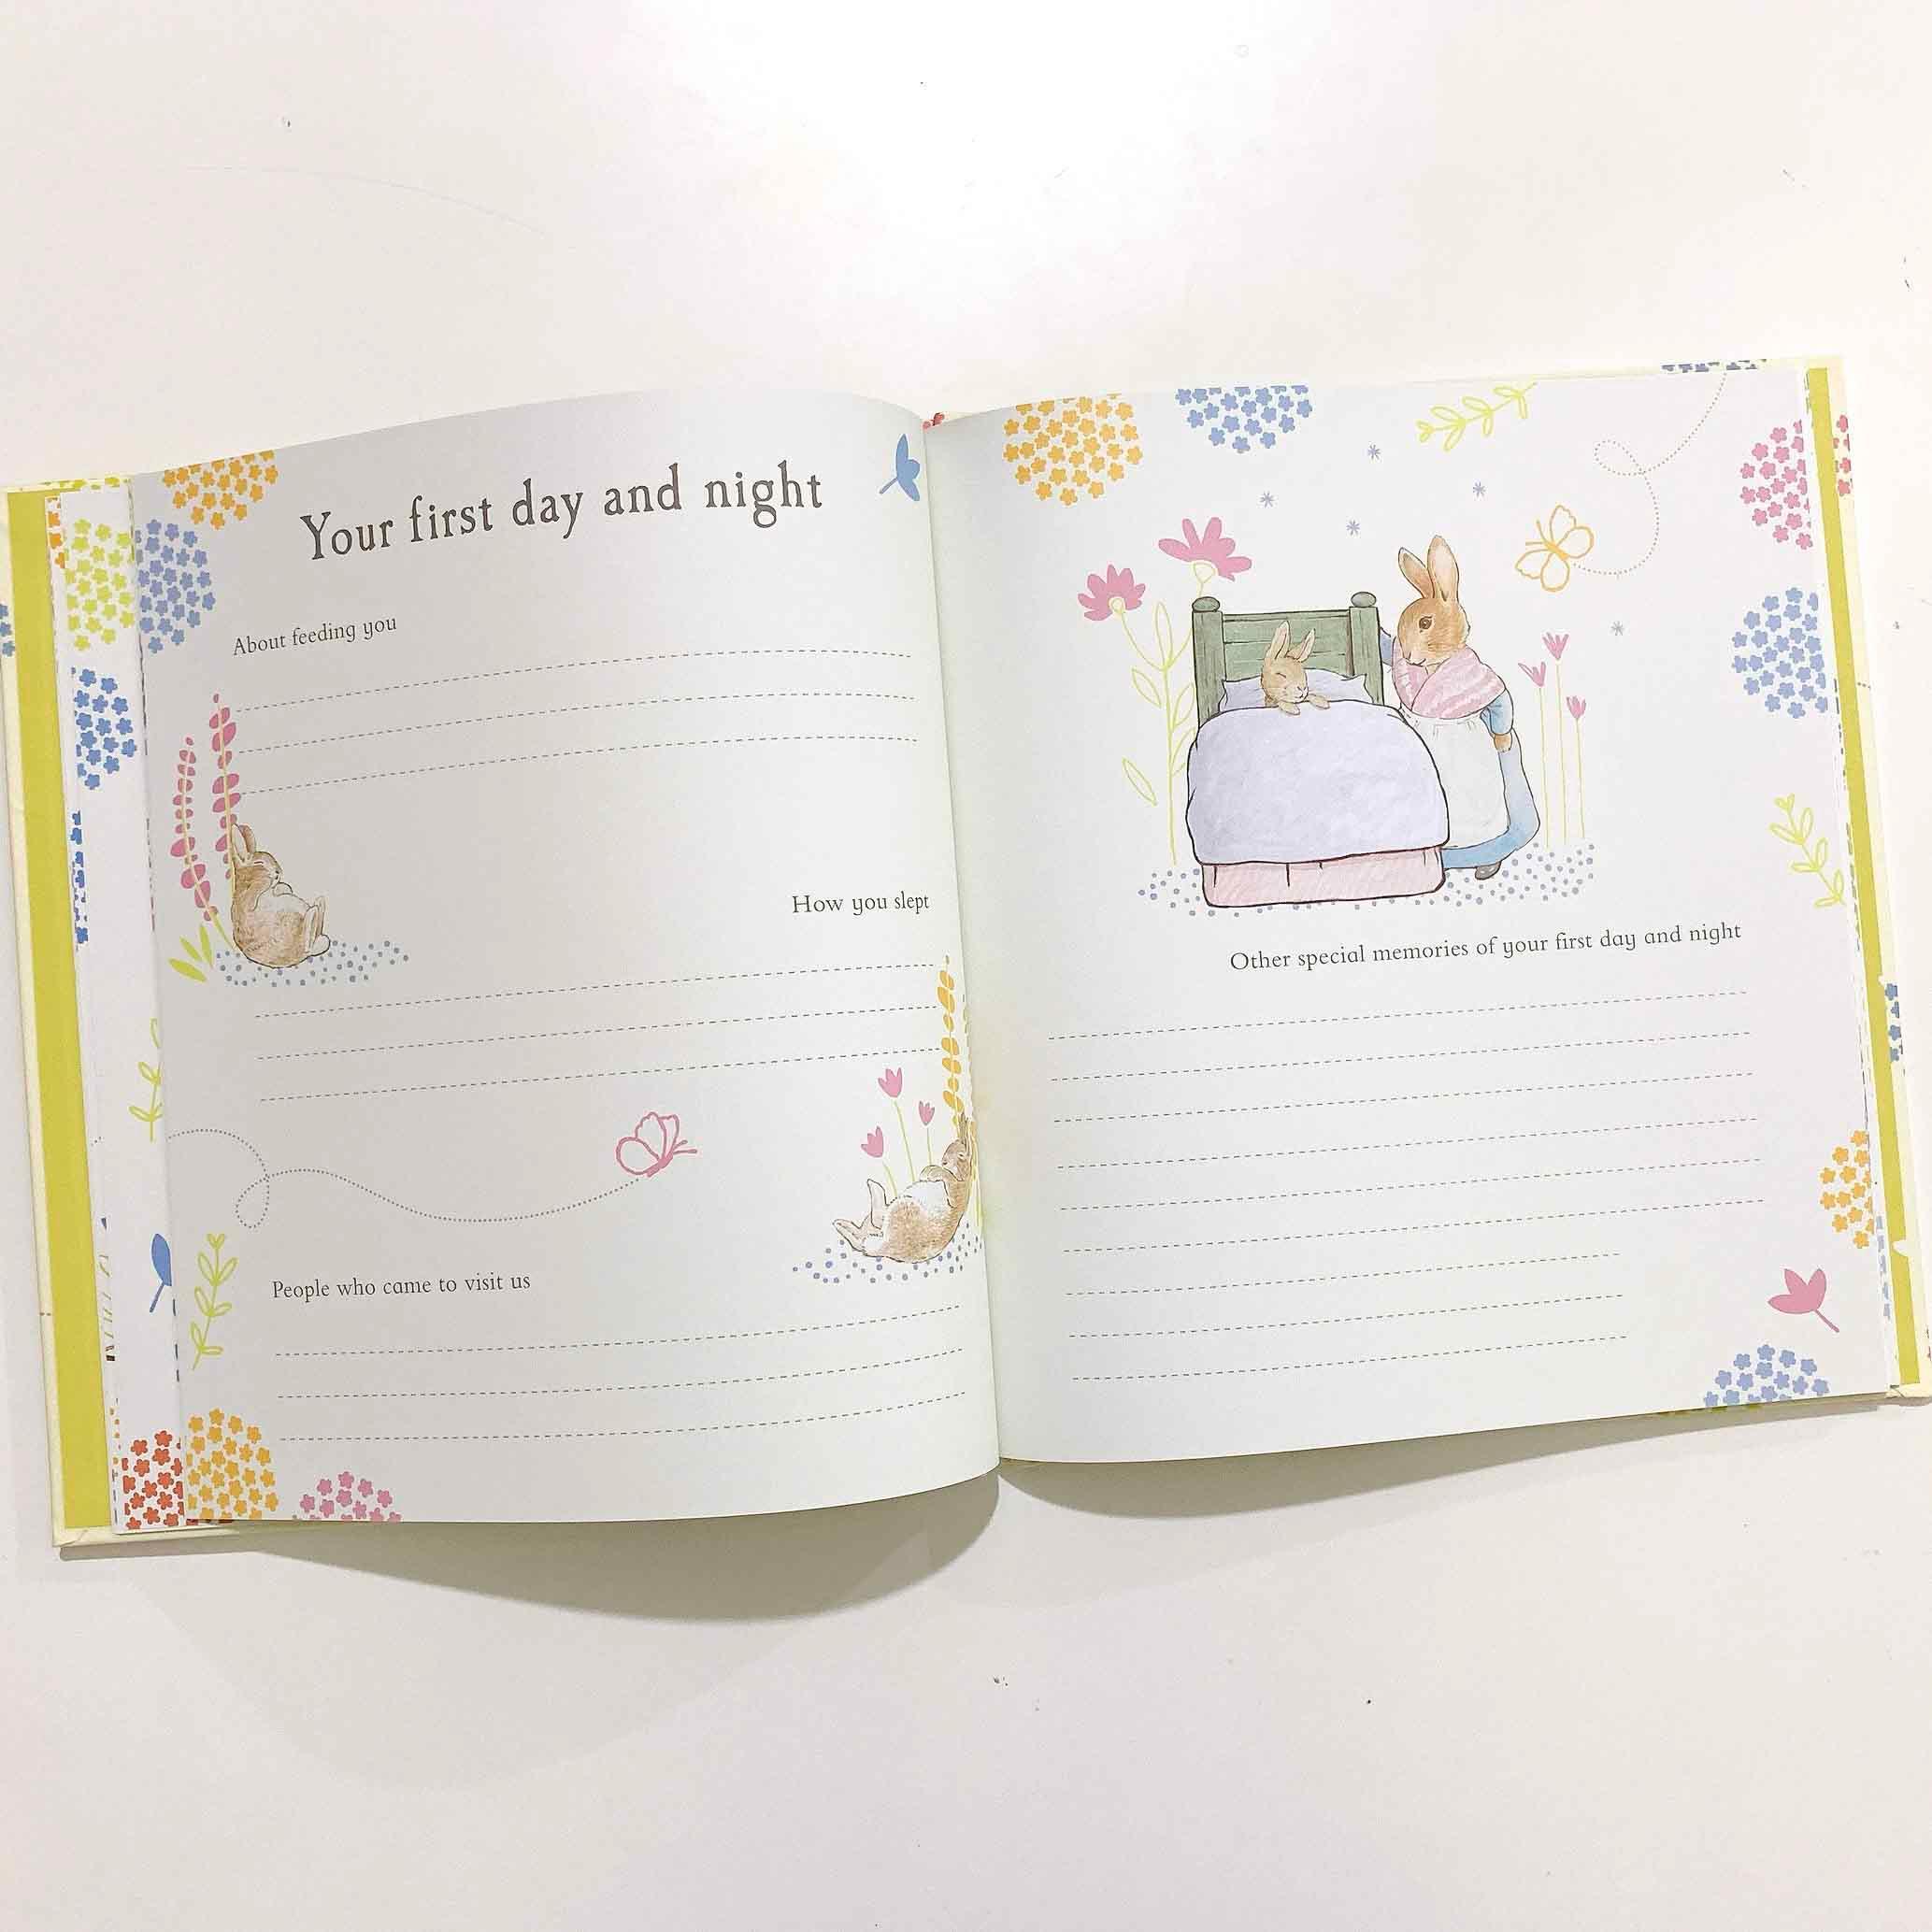 Your first day and night
About feeding you
How you slept
People who came to visit us
Other special memories of your first day and night